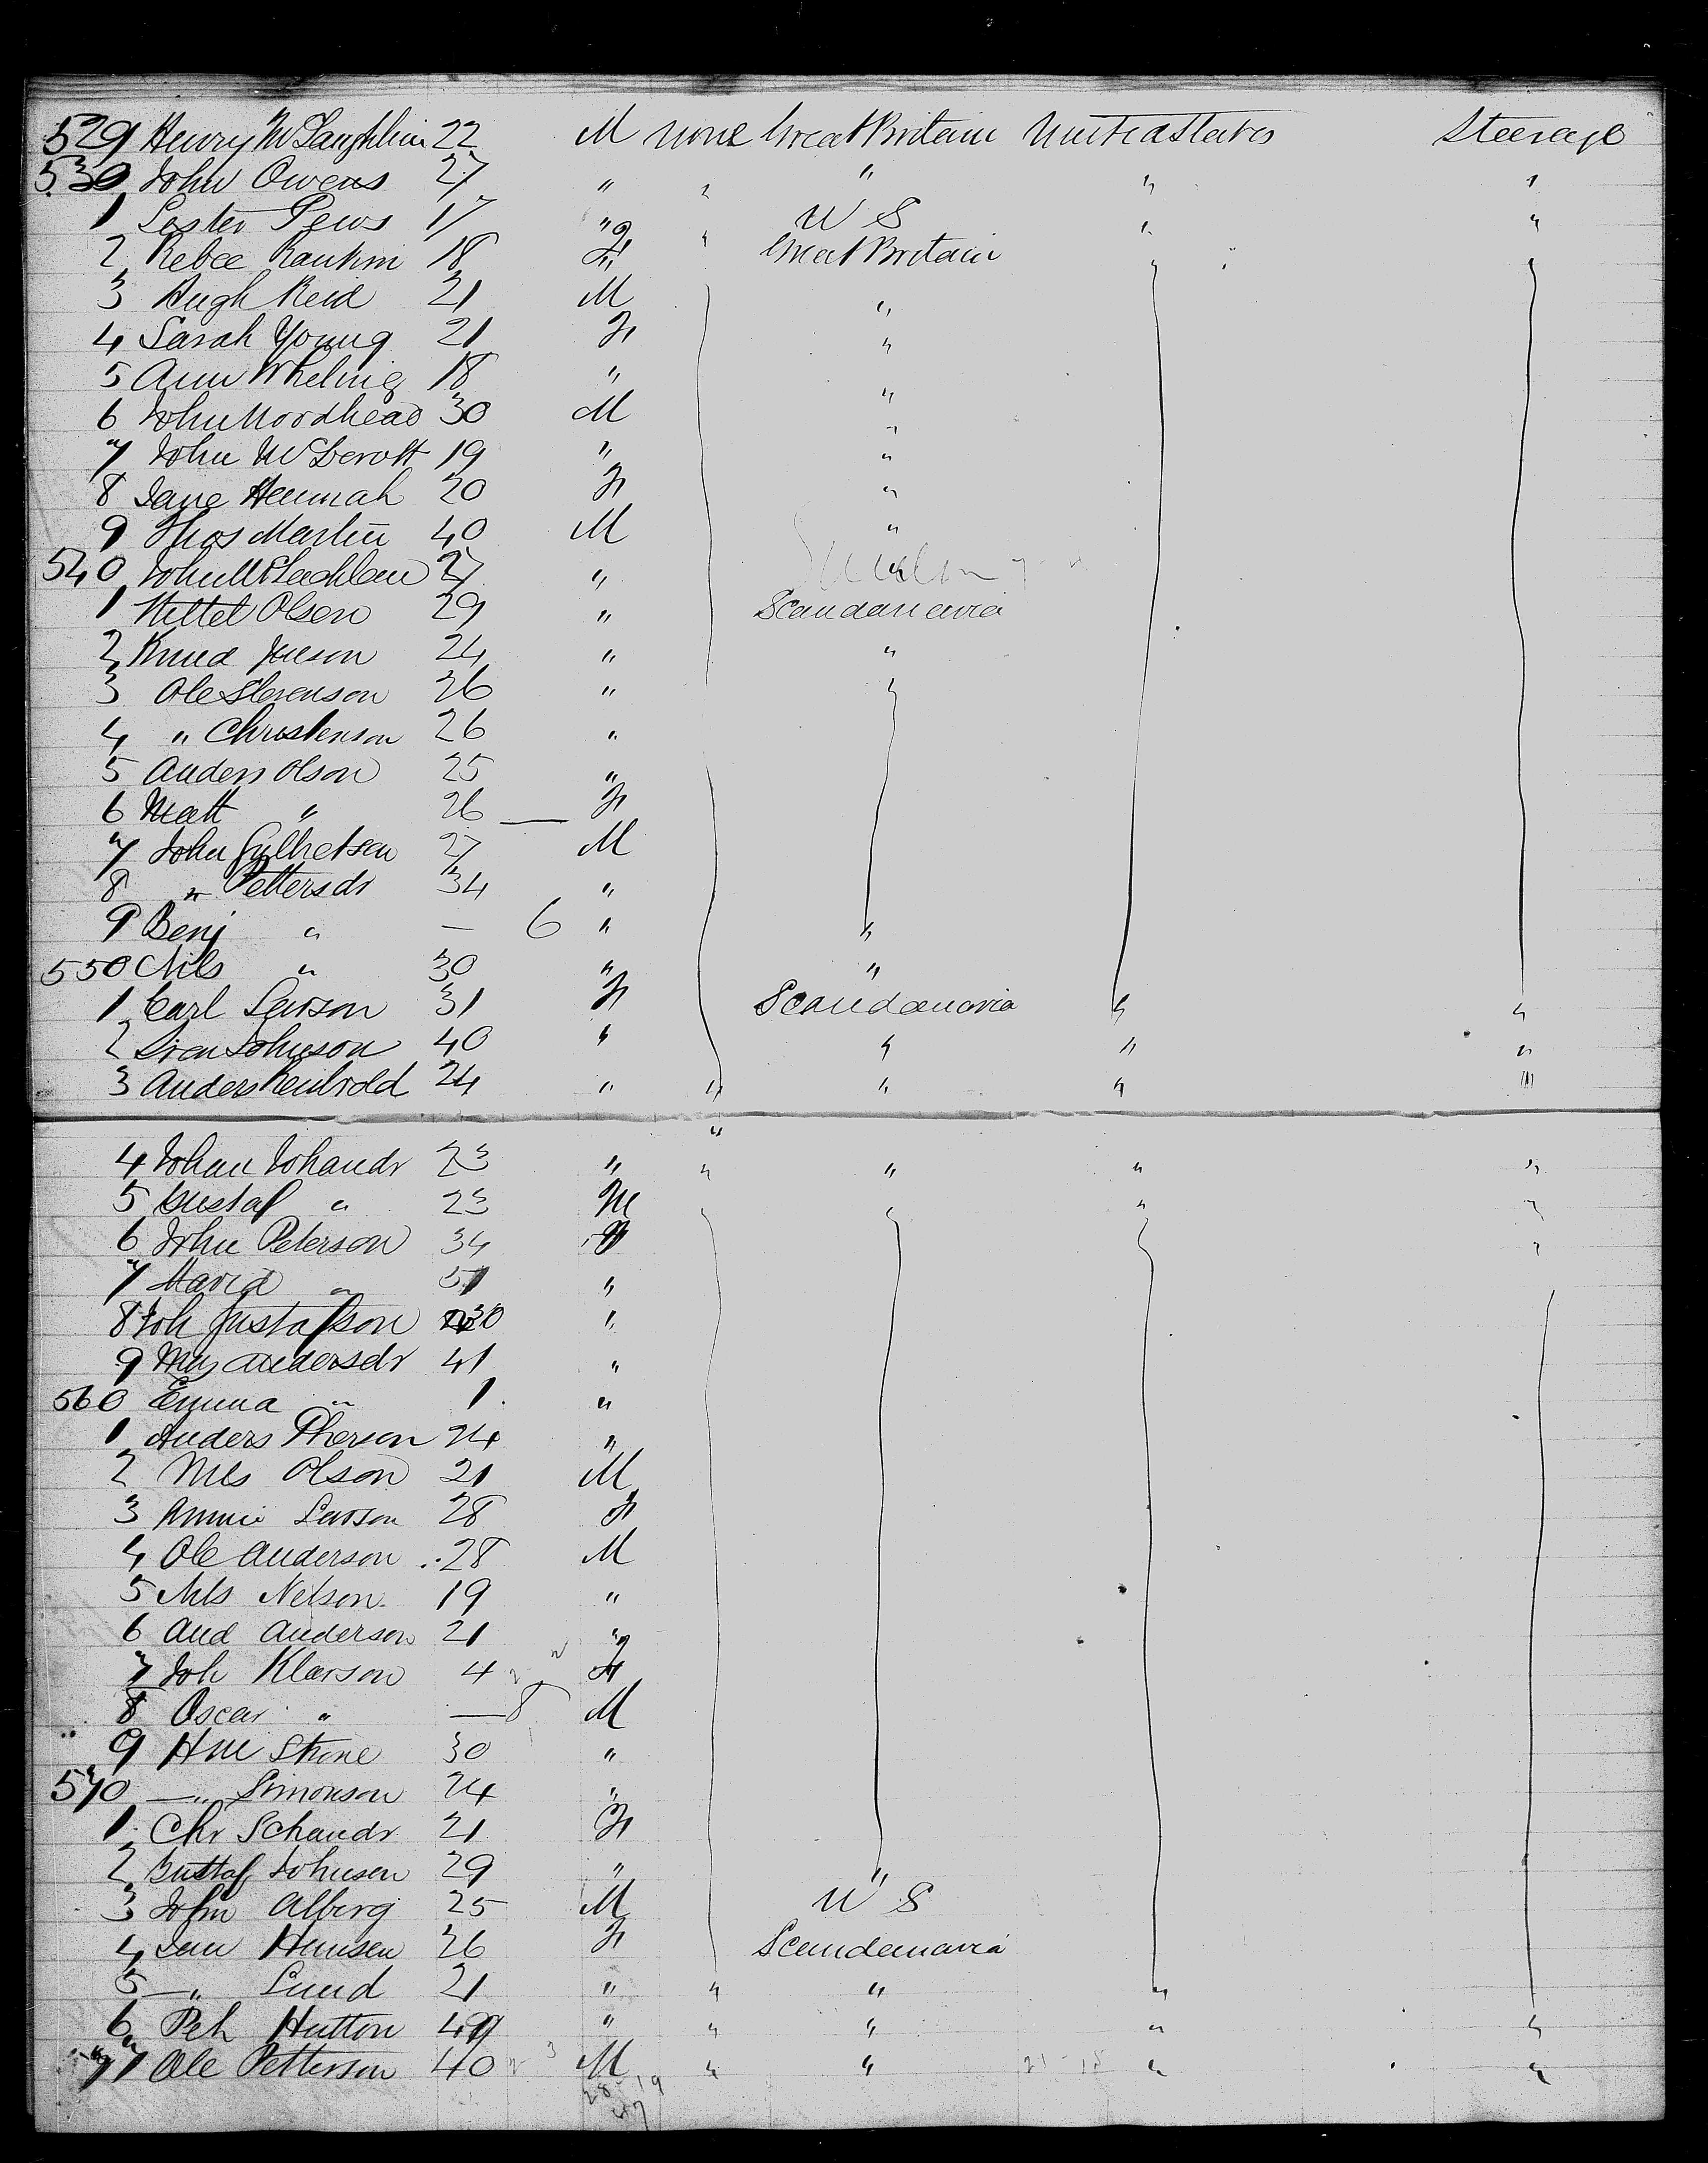 529 Henry McLaughlin 22 M none Great Britain United States Steerage
530 John Owens 27 " " " " "
1 Lester Pews 17 " " U S " "
2 Rebec Rankin 18 F Great Britain " "
3 Hugh Reid 21 M "
4 Sarah Young 21 F "
5 Ann Wheling 18 " "
6 John Moodhead 30 M "
7 John McDerott 19 " "
8 Jane Hannah 20 F "
9 Thos Martin 40 M "
540 John McLachlan 27 " "
1 Kettel Olsen 29 " Scandanavia
2 Knud 24 " "
3 Ole Stevenson 26 "
4 " Christenson 26 "
5 Anders Olson 25 "
6 Matt " 26 — F
7 John 27 M
8 " Pettersdr 34 "
9 Benj " — 6 " "
550 Nils " 30 " "
1 Carl Larson 31 F Scandanavia " "
2 Sven Johnson 40 " " " "
3 Anders 24 " " " " "
"
4 Johan Johandr 23 " " " " "
5 Gustaf " 23 M " "
6 John Peterson 34 "
7 " "
8 Joh Gustafson 30 "
9 Andersdr 41 "
560 Emma " 1 "
1 Anders Pherson 24 "
2 Nils Olson 21 M
3 Annie Larson 28 F
4 Ole Anderson 28 M
5 Nils Nelson 19 "
6 And Anderson 21 "
7 Joh Klarson 4 F
8 Oscar " — 8 M
9 Stone 30 "
570 — " Simonson 24 "
1 Chr Schandr 21 F
2 Gustaf Johnson 29 " "
3 John Alberg 25 M U S
4 Jan Hansen 26 F Scandanavia
5 — " Lund 21 " " " "
6 Peh Hutton 49 " " " " "
77 Ole Petterson 40 M " " 21-18 " "
28-19
47